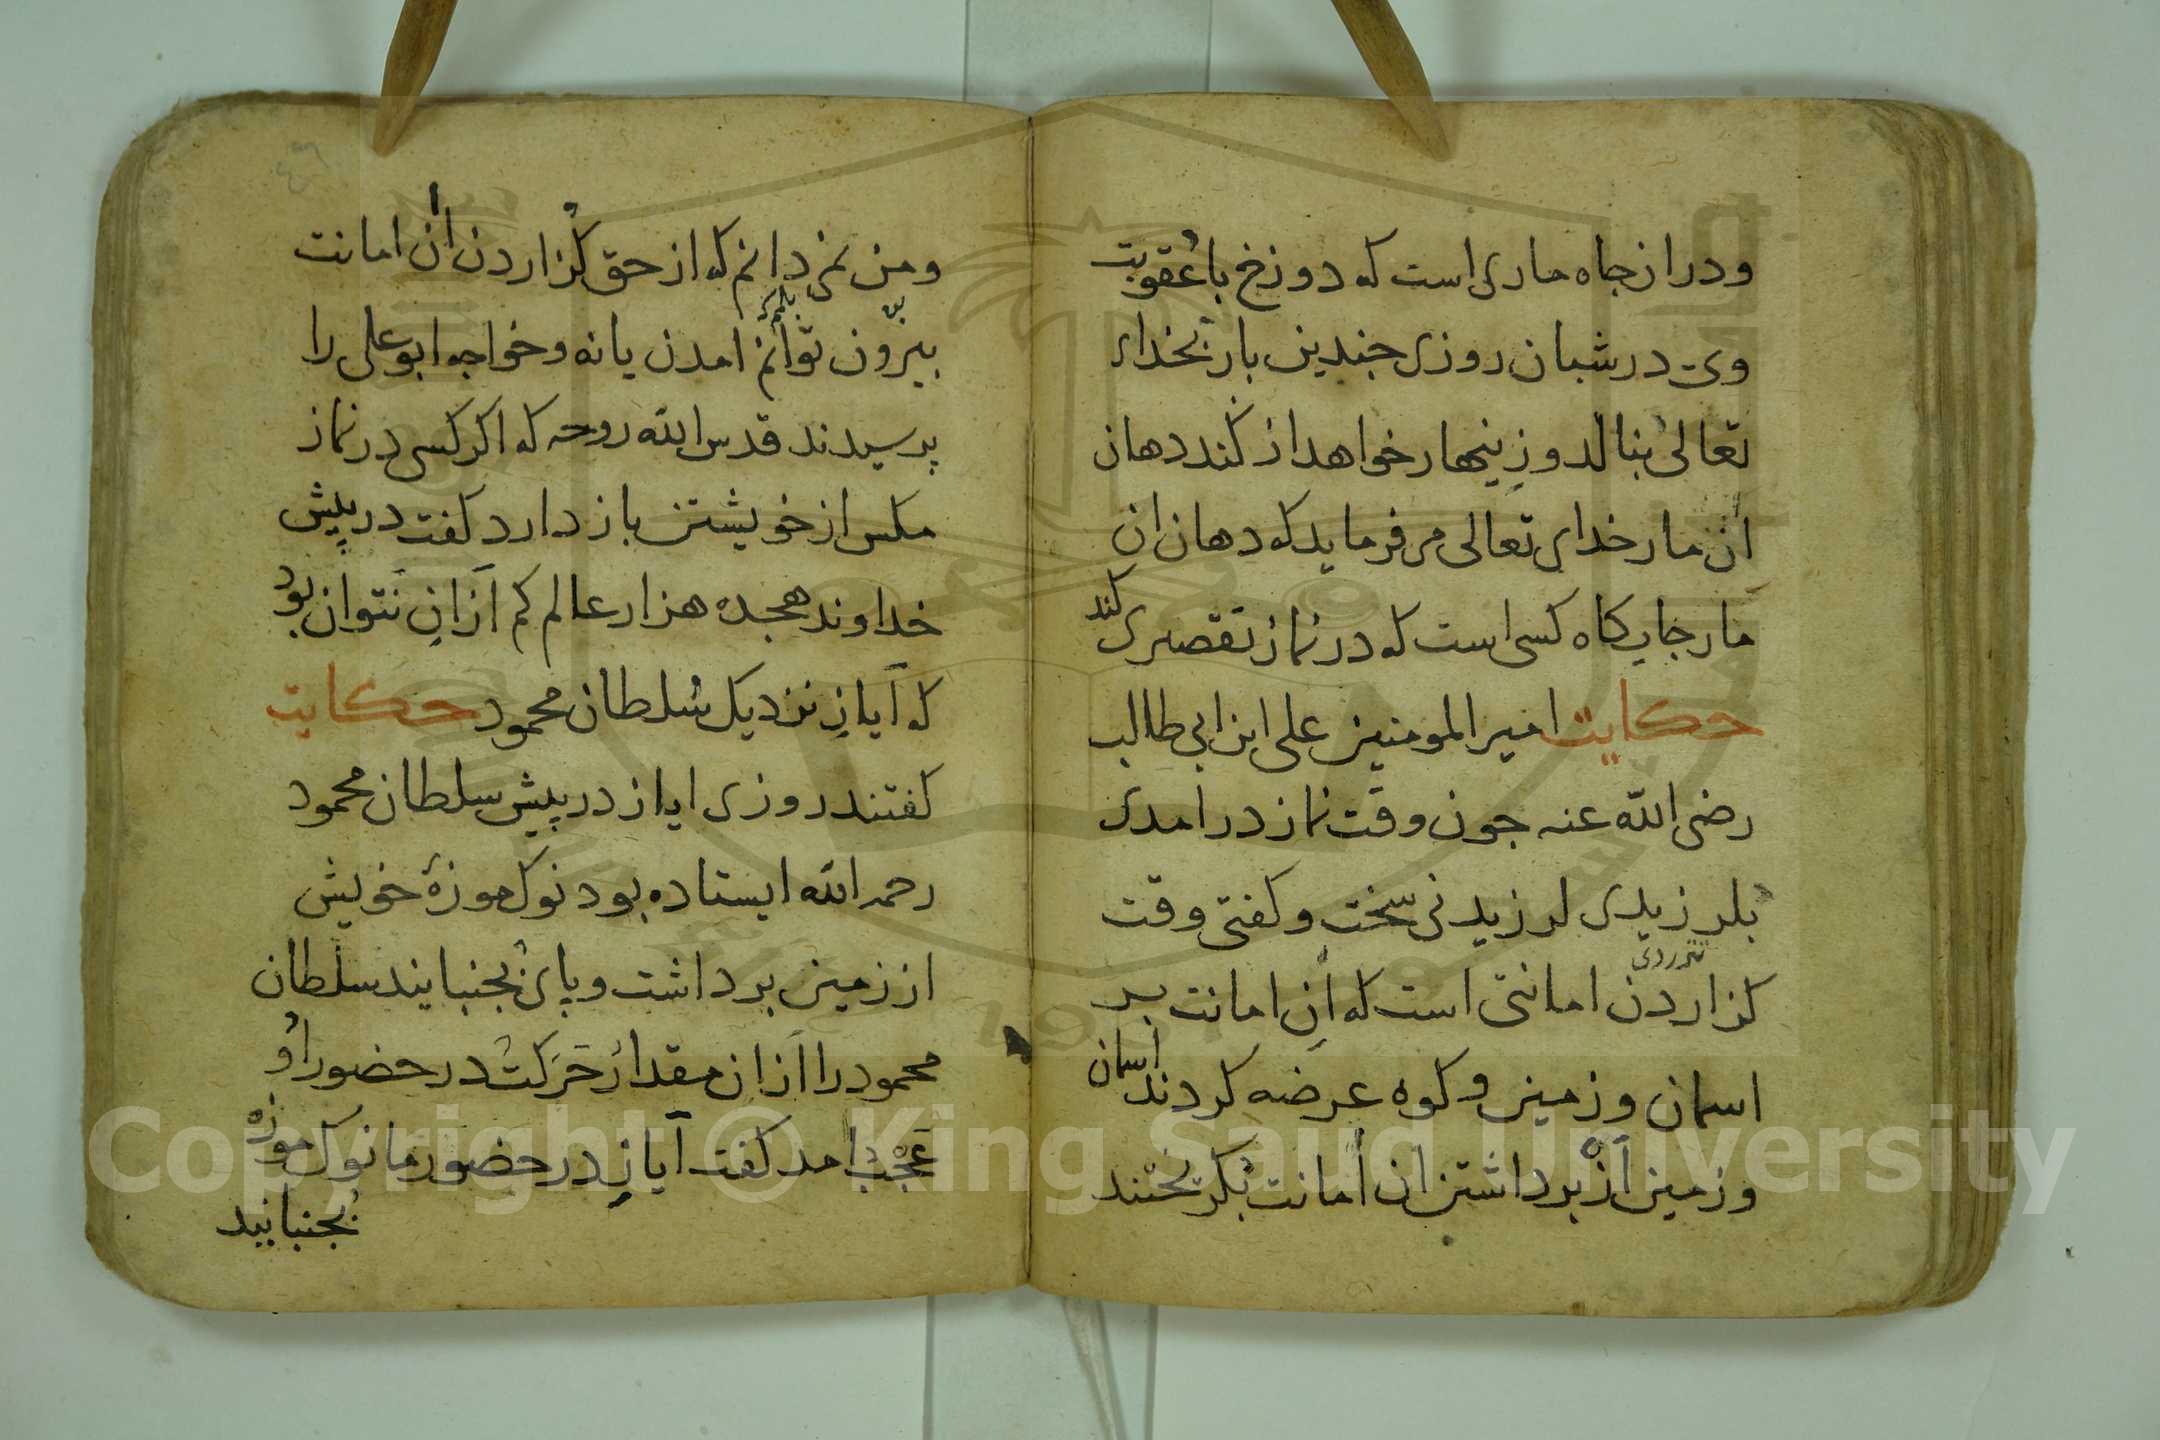 ودر ان جاه ماری است که دوزخ با عقوبت
وی در شبان روزی جندین بار بخدای
تعالی بنالد و زینهار خواهد از کند دهان
ان مار خدای تعالی می فرماید که دهان ان
مار جایکاه کسی است که در نماز تقصیری کند
حکایت امیر المومنین علی ابن ابی طالب
رضی الله عنه جون وقت نماز در امدی
بلرزیدی لرزیدنی سخت و کفتی وقت
کزاردن امانتی است که ان امانت بر
اسمان و زمین و کوه عرضه کردند اسمان
و زمین از برداشتن ان امانت بکریختند
ومن نمی دانم که از حق کزاردن ان امانت
بیرون توانم امدن یا نه و خواجه ابو علی را
پرسیدند قدس الله روحه که اکر کسی در نماز
مکس از خویشتن باز دارد کفت در پیش
خداوند هجده هزار عالم کم از ان نتوان بود
که ایاز نزدیک سلطان محمود حکایت
کفتند روزی ایاز در پیش سلطان محمود
رحمه الله ایستاده بود نوک موزهٔ خویش
از زمین برداشت و پای بجنبایند سلطان
محمود را از ان مقدار حرکت در حضور او
عجب امد کفت ایاز در حضور ما نوک موزه
بجنبانید
Copyright © King Saud University